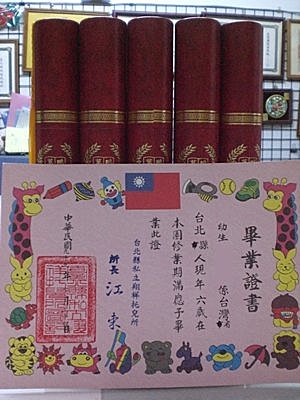 畢業證書
幼生 係台灣省
台北縣人現年六歲在
本園修業期滿應予畢
業此證
台北縣私立翔 托兒所
所長 江 東
中華民國 年 月 日